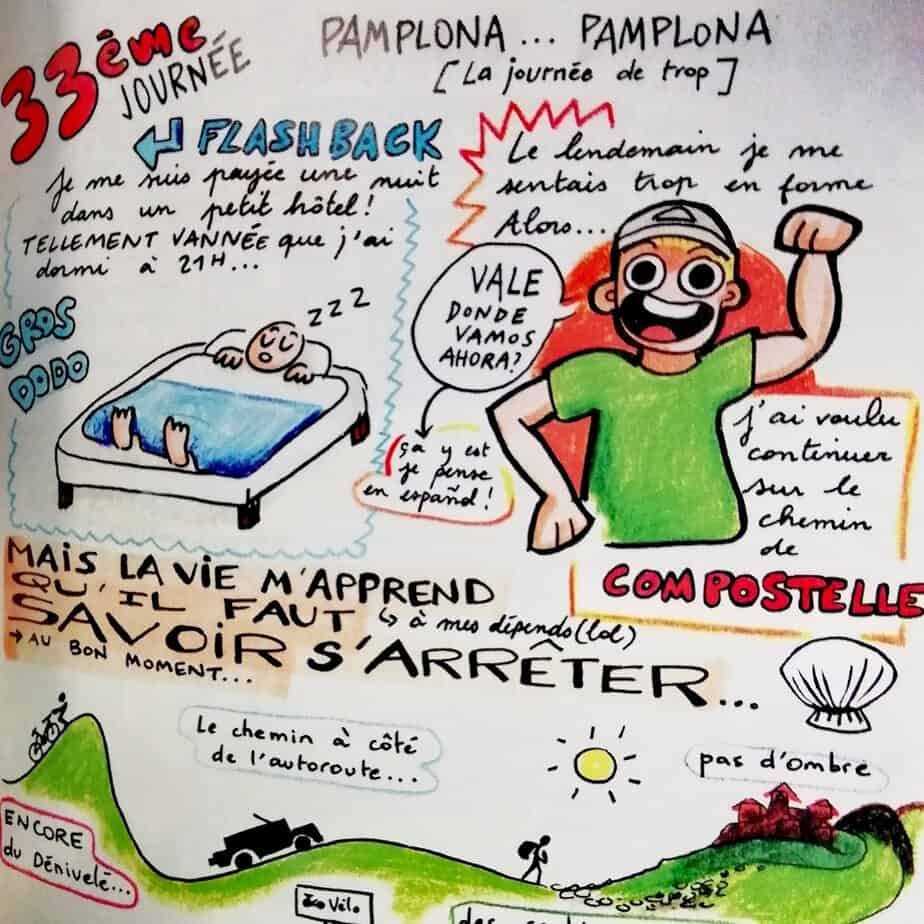 33ème
JOURNÉE
PAMPLONA... PAMPLONA
[La journée de trop]
FLASHBACK
Je me suis payée une nuit
dans un petit hôtel!
TELLEMENT VANNÉE que j'ai
dormi à 21H...
GROS
DODO
zzz
Le lendemain je me
sentais trop en forme
Alors...
VALE
DONDE
VAMOS
AHORA?
ça y est
je pense
en español!
j'ai voulu
continuer
sur le
chemin
de
COMPOSTELLE
MAIS LA VIE M'APPREND
QU'IL FAUT
à mes dépends (lol)
SAVOIR S'ARRÊTER...
→ AU BON MOMENT...
Le chemin à côté
de l'autoroute...
pas d'ombre
ENCORE
du Dénivelé...
Vélo
des